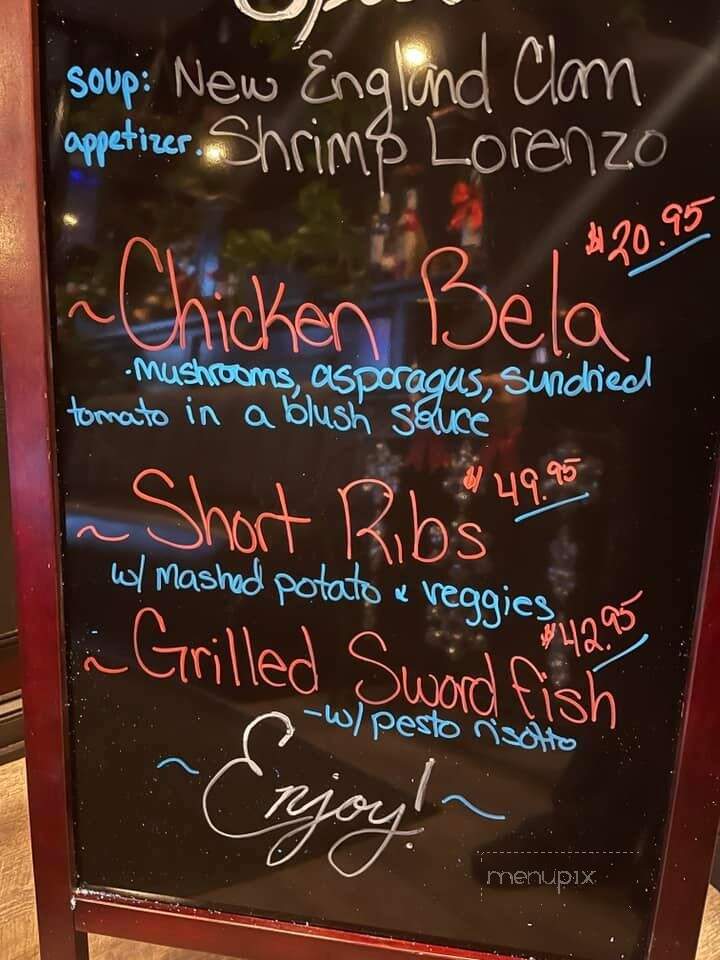 soup: New England Clam
appetizer. Shrimp Lorenzo
$20.95
~Chicken Bela
·mushrooms, asparagus, sundried
tomato in a blush sauce
$49.95
~Short Ribs
w/ mashed potato & veggies
$42.95
~Grilled Sword fish
-w/pesto risotto
~Enjoy!~
menupix